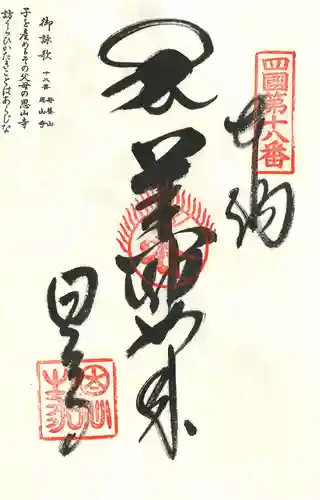 四國第十八番
奉納
薬師如来
恩山寺
御詠歌 十八番 母養山 恩山寺
子を産めるその父母の恩山寺
訪らひがたきことはあらじな